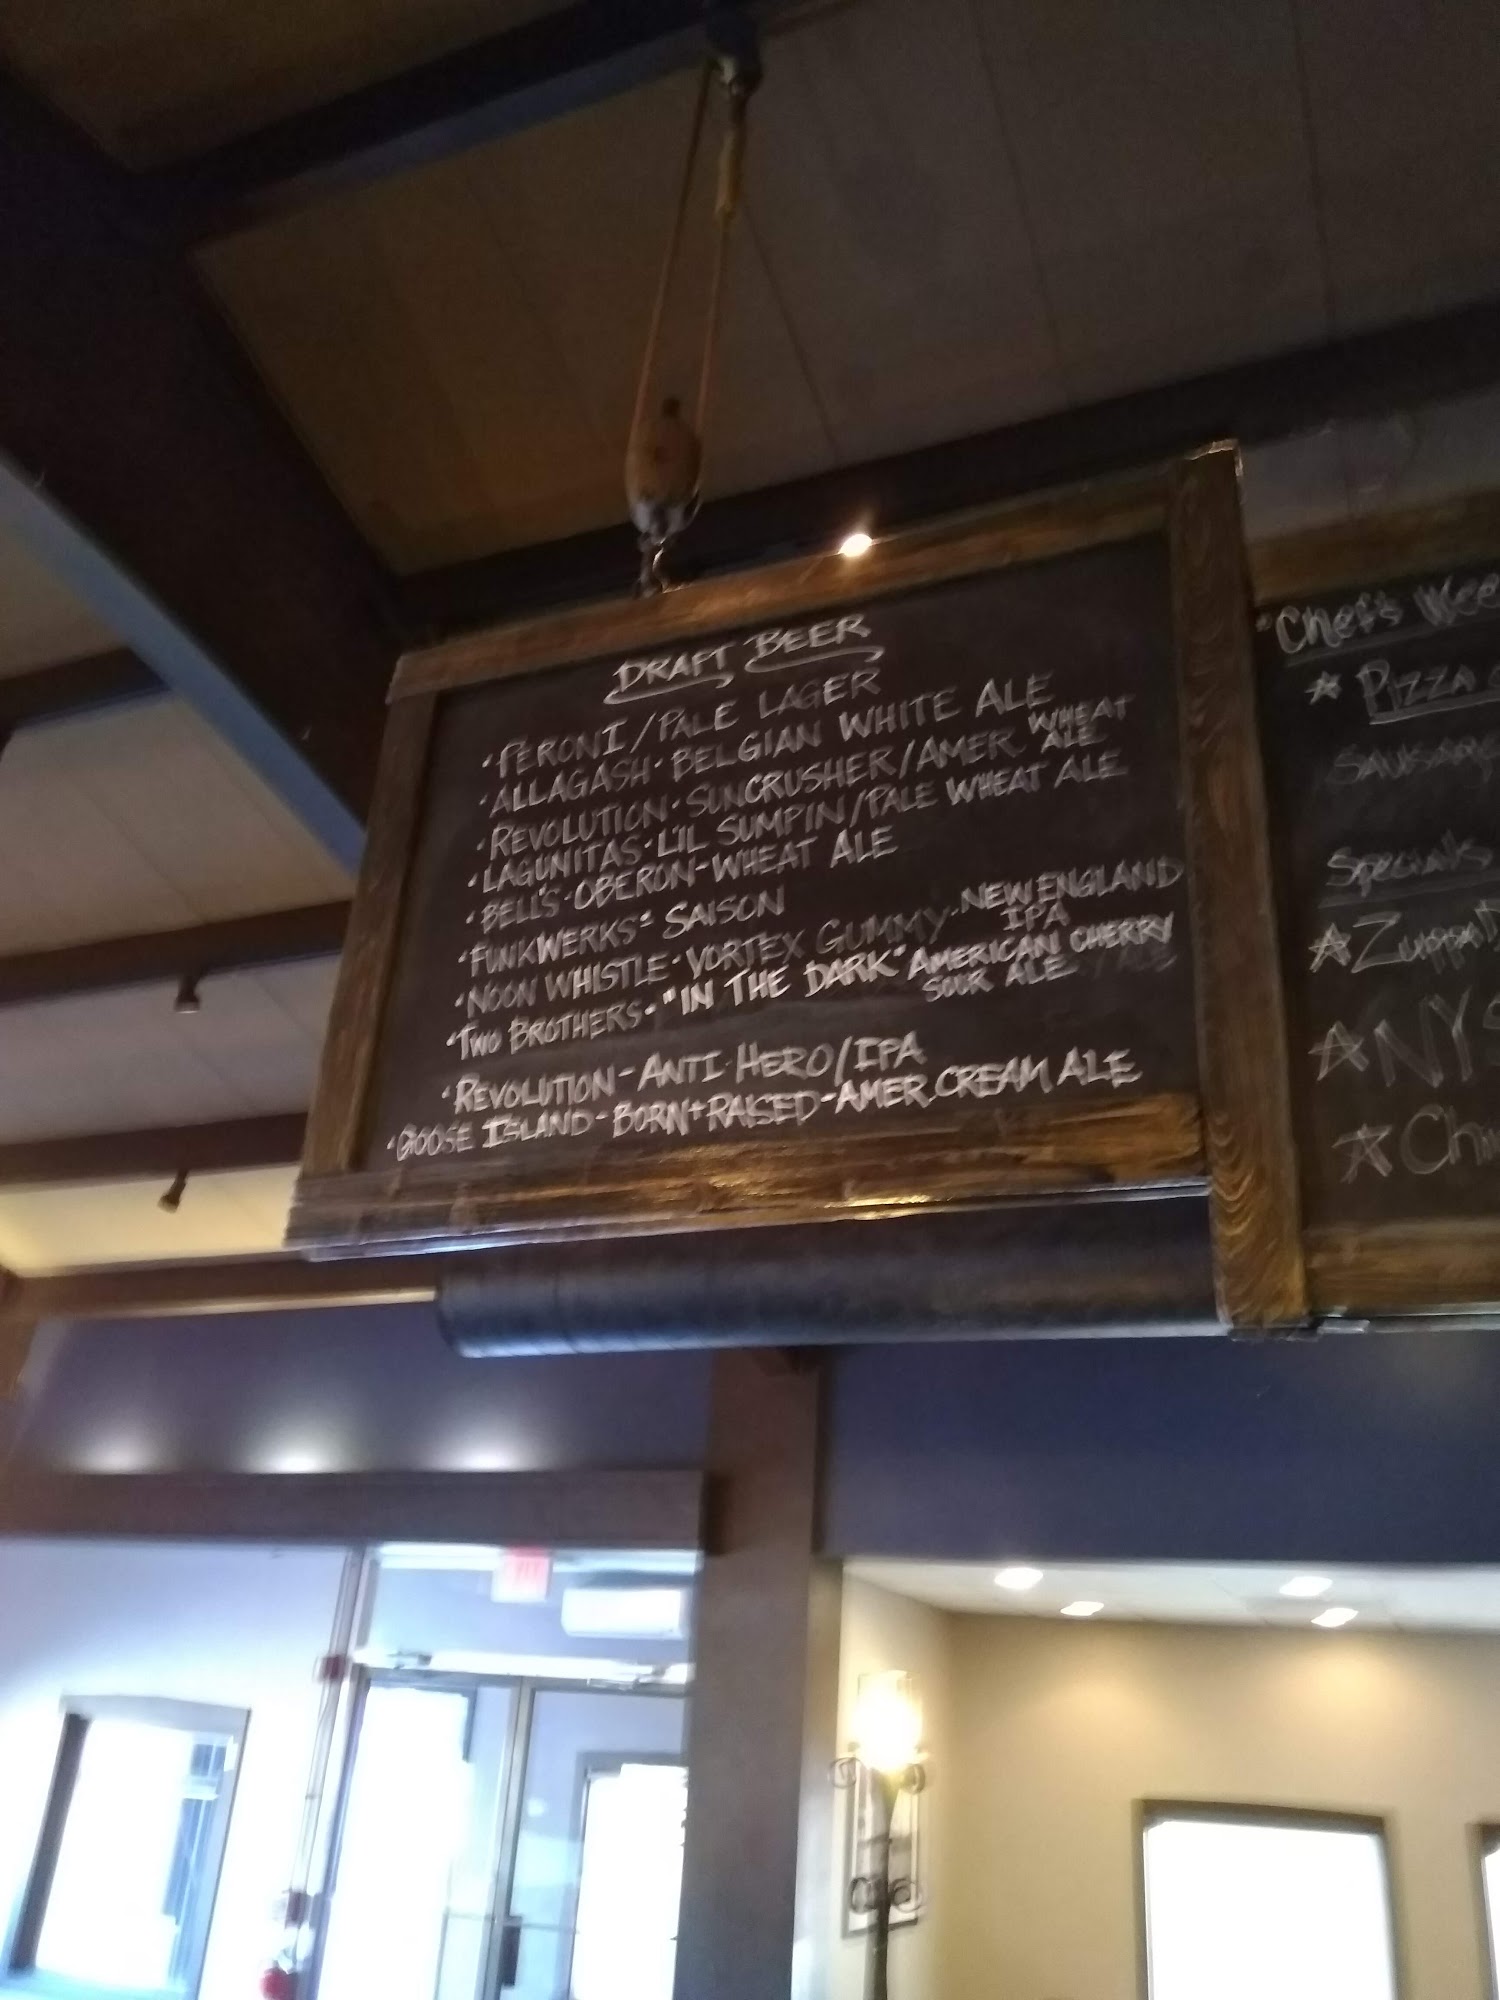 DRAFT BEER
• PERONI/PALE LAGER
• ALLAGASH • BELGIAN WHITE ALE
• REVOLUTION • SUNCRUSHER/AMER WHEAT
ALE
• LAGUNITAS • LIL SUMPIN/PALE WHEAT ALE
• BELL'S • OBERON - WHEAT ALE
• FUNKWERKS - SAISON
• NOON WHISTLE • VORTEX GUMMY - NEW ENGLAND
IPA
• TWO BROTHERS • "IN THE DARK" AMERICAN CHERRY
SOUR ALE
• REVOLUTION - ANTI-HERO/IPA
• GOOSE ISLAND - BORN + RAISED - AMER. CREAM ALE
• Chef's
☆ PIZZA
Specials
☆ Zuppa
☆ NY
☆